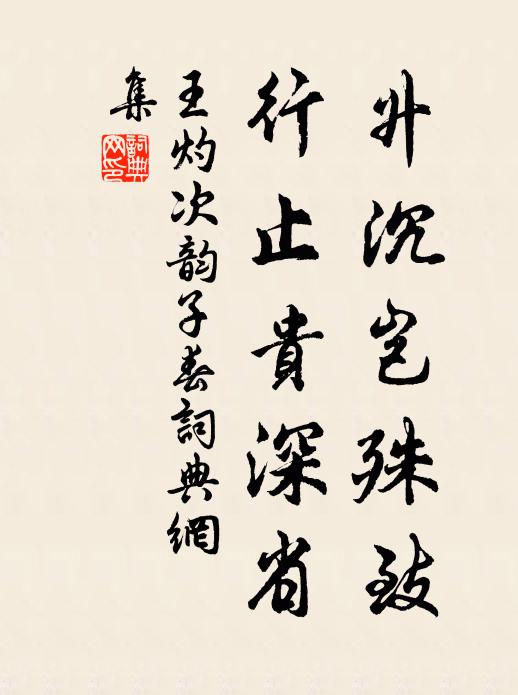 升沉岂殊致
行止貴深省
王灼次韵子春詞典網
集
詞典网印